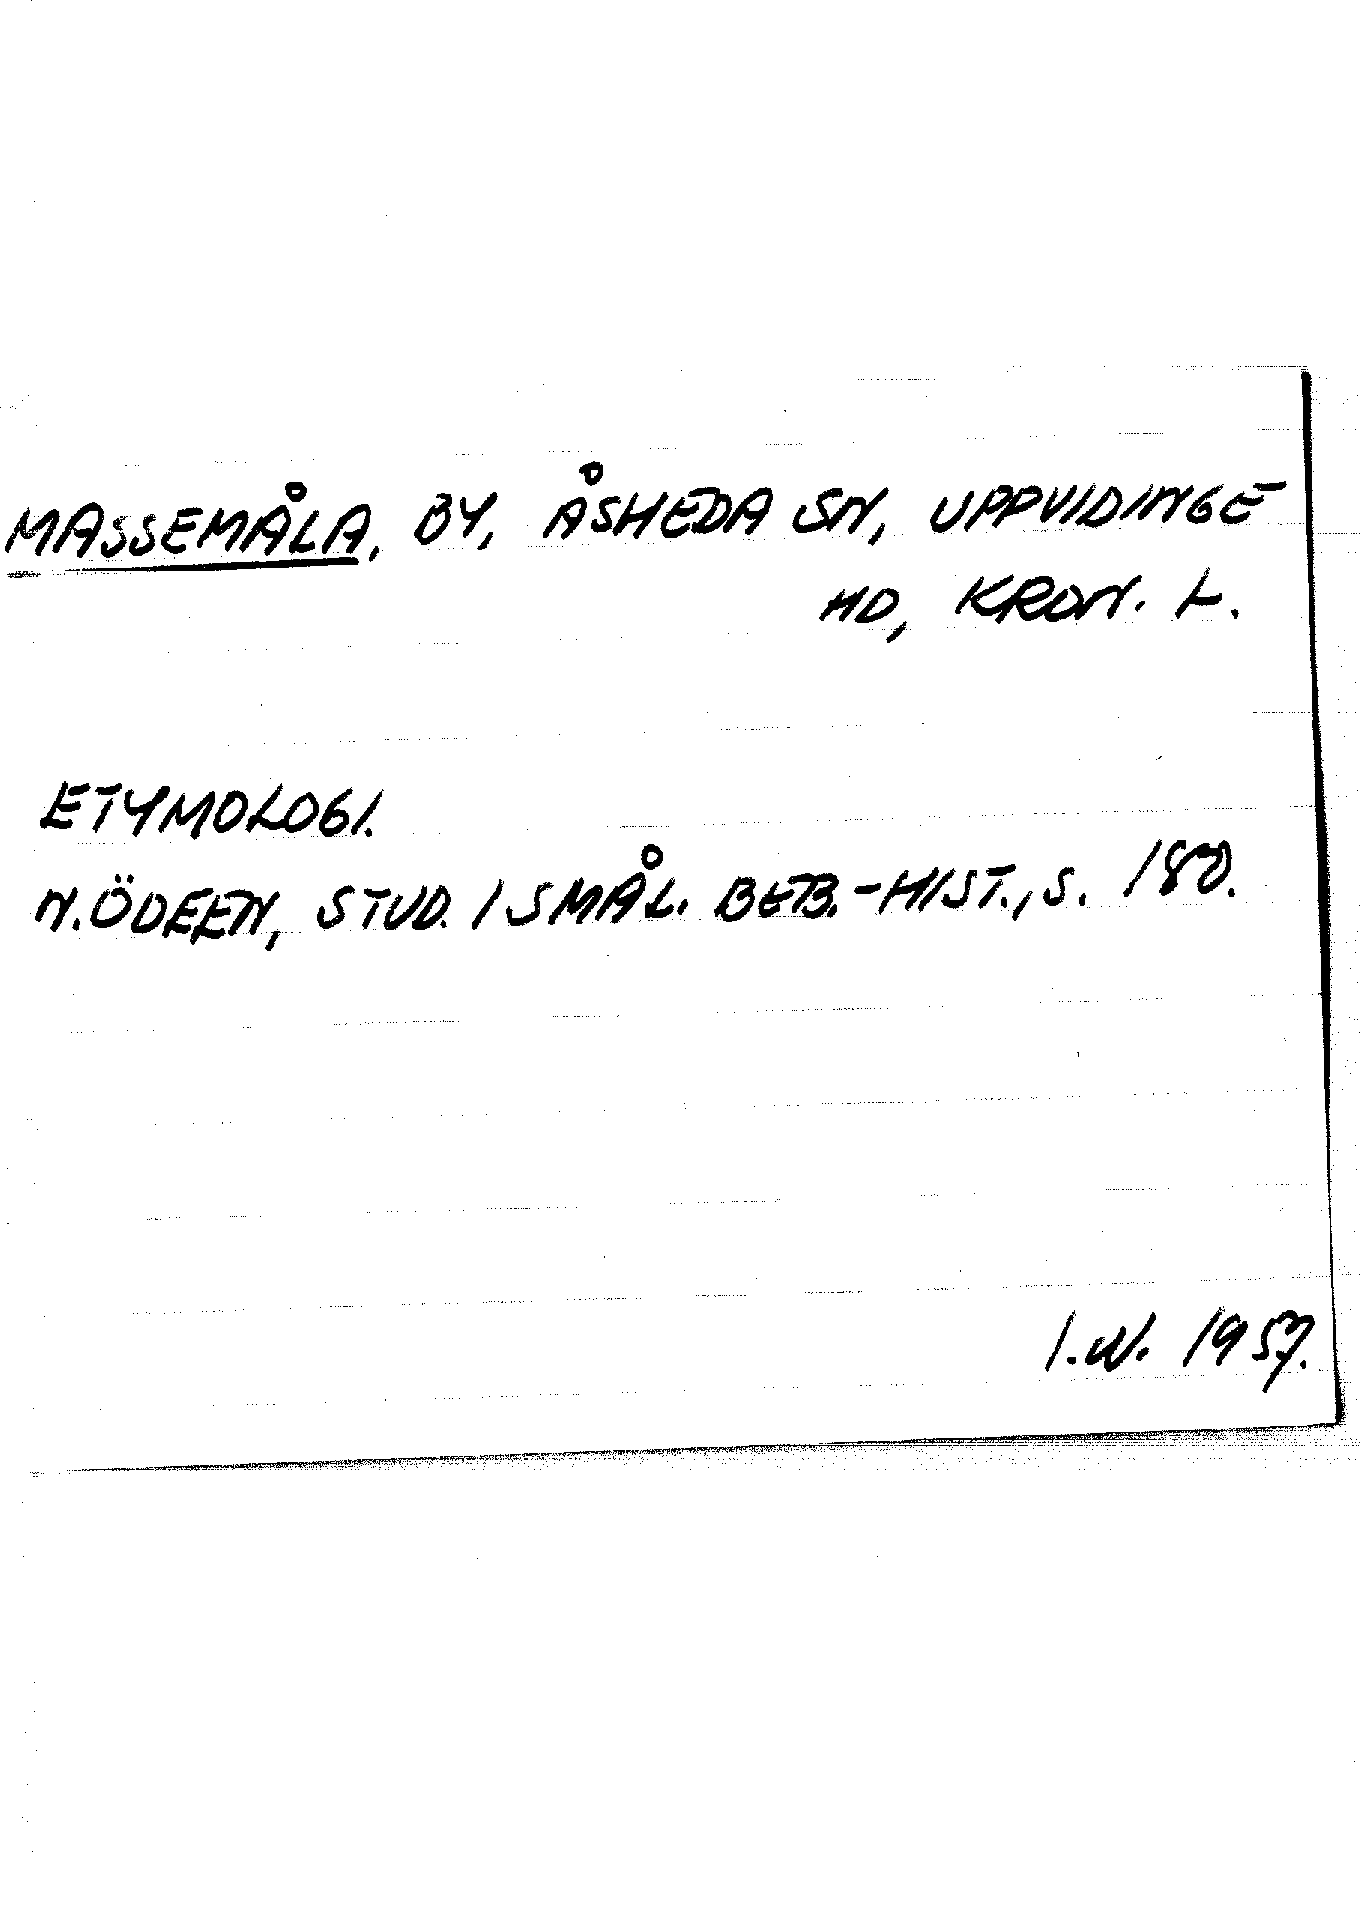 MASSEMÅLA, BY, ÅSHEDA SN, UPPVIDINGE
HD, KRON. L.
ETYMOLOGI.
N. ÖDEEN, STUD. I SMÅL. BEB.-HIST., S. 180.
I.N. 1957.